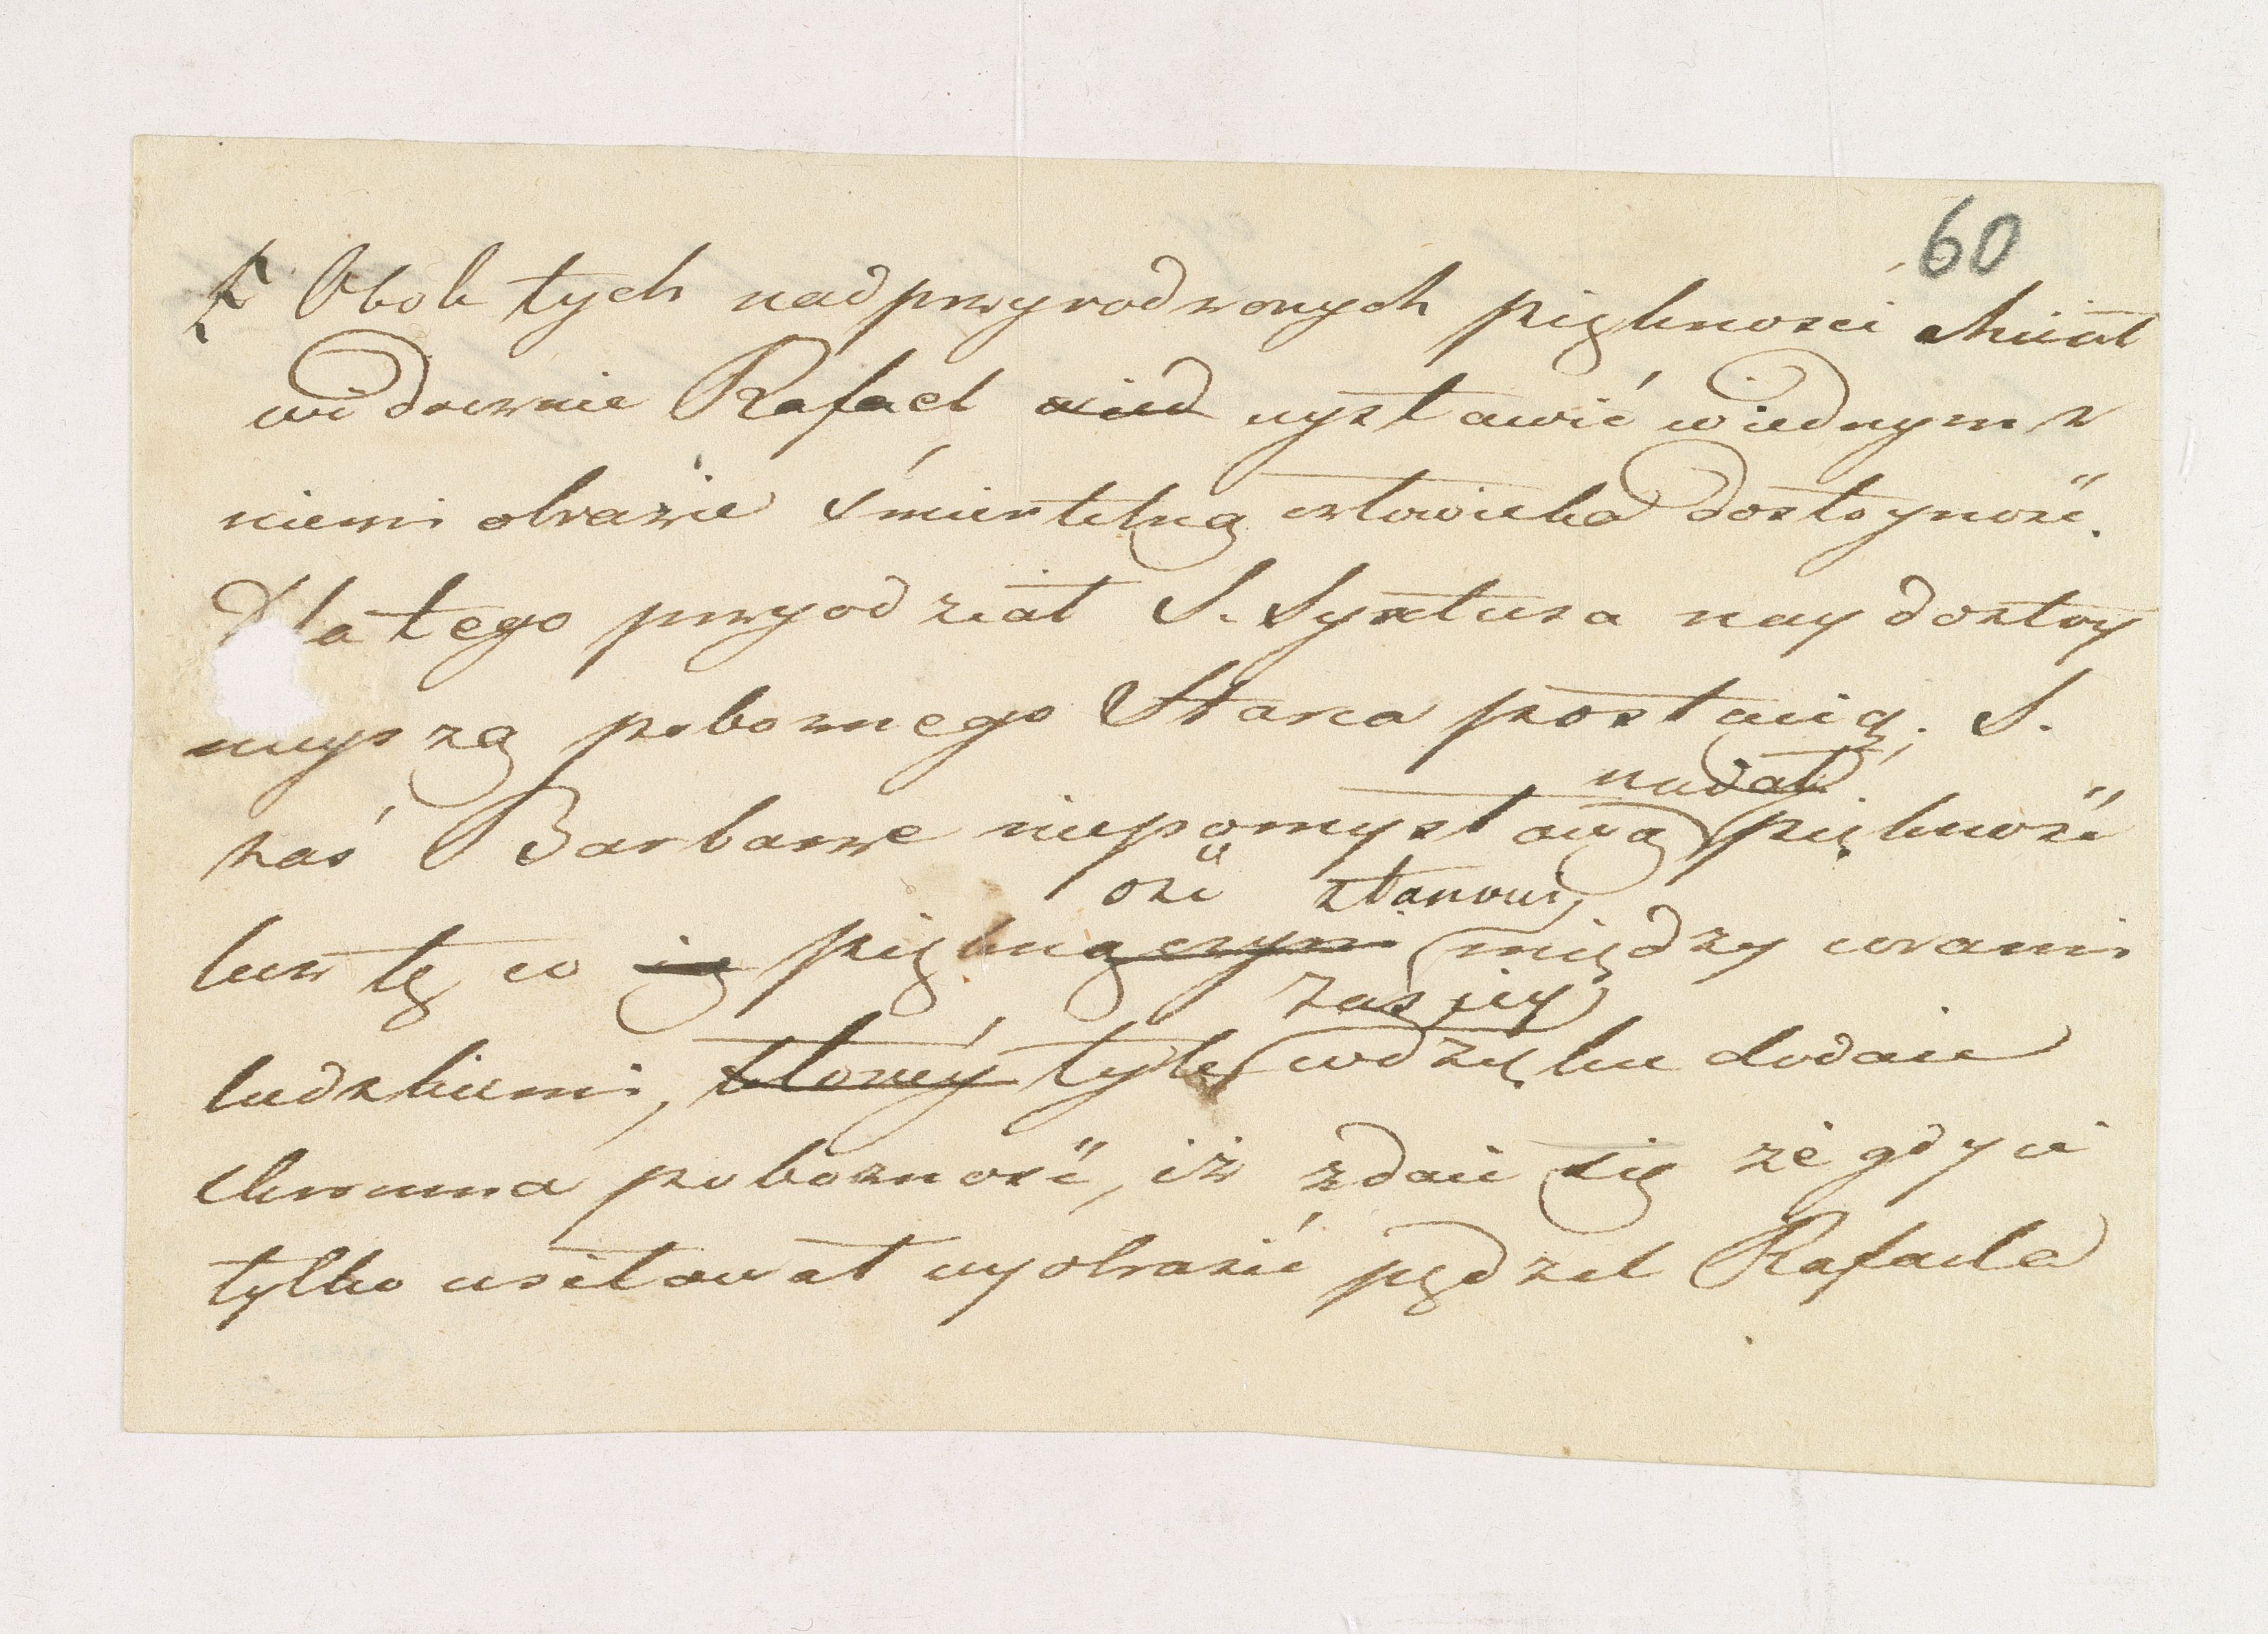 60
Obok tych nadprzyrodzonych piękności chciał
widocznie Rafael wystawić w iednym z
niemi obrazie śmiertelną człowieka dostoyność.
Dla tego przyodział S. Syxtusa nay dostoy
nieyszą pobożnego Starca postacią; S.
nadał
zaś Barbarze niepomysłową piękność
ość stanowi
lecz tę co ią piękną między córami
ludzkiemi, którey tyle wdzięku dodaie
zaś iey
skromna pobożność, iż zdaie się że gdy ci
tylko usiłował wyobrazić pędzel Rafaela